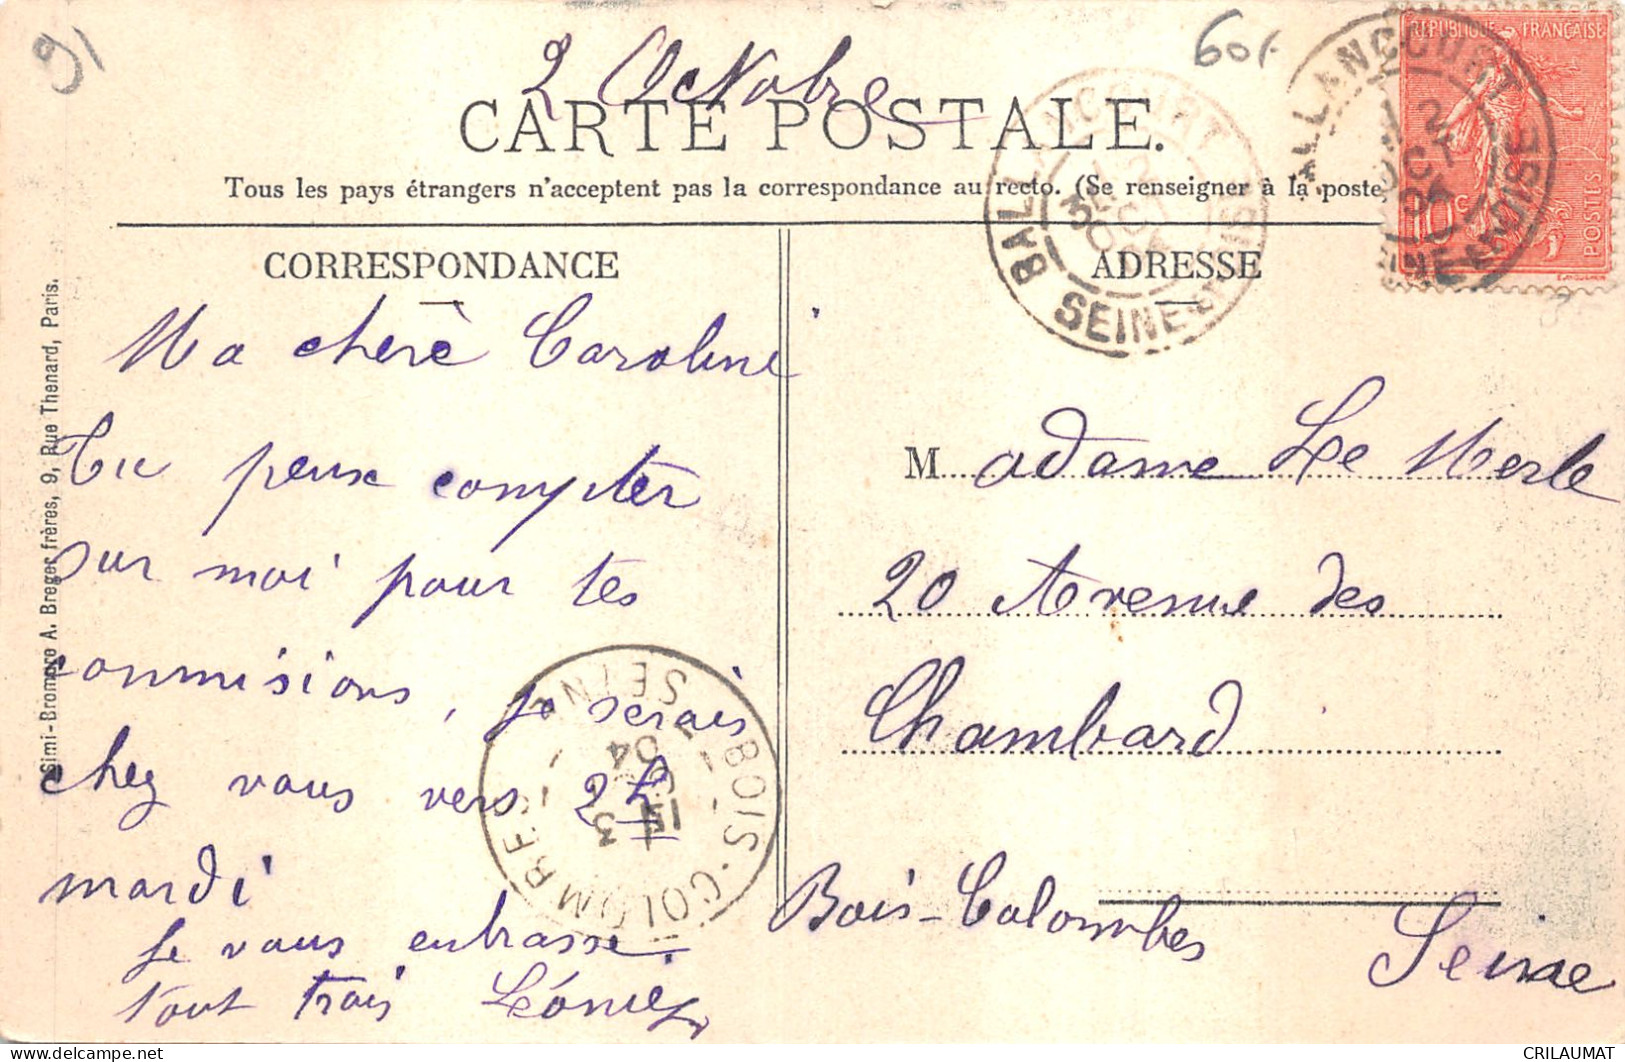 91
60f
2 Octobre
CARTE POSTALE.
Tous les pays étrangers n'acceptent pas la correspondance au recto. (Se renseigner à la poste
RÉPUBLIQUE FRANÇAISE
10c
POSTES
BALLANCOURT
2
OCT
04
SEINE-ET-OISE
BALLANCOURT
3E
2
OCT
04
SEINE-ET-OISE
CORRESPONDANCE
Ma chère Caroline
Tu peux compter
sur moi pour tes
commisions, je serais
chez vous vers 2h
mardi
Je vous embrasse
tout trois Léonie
ADRESSE
Madame Le Merle
20 Avenue des
Chambard
Bois-Colombes
Seine
BOIS-COLOMBES
SEINE
15
3
04
Simi-Bromure A. Breger frères, 9, Rue Thenard, Paris.
CRILAUMAT